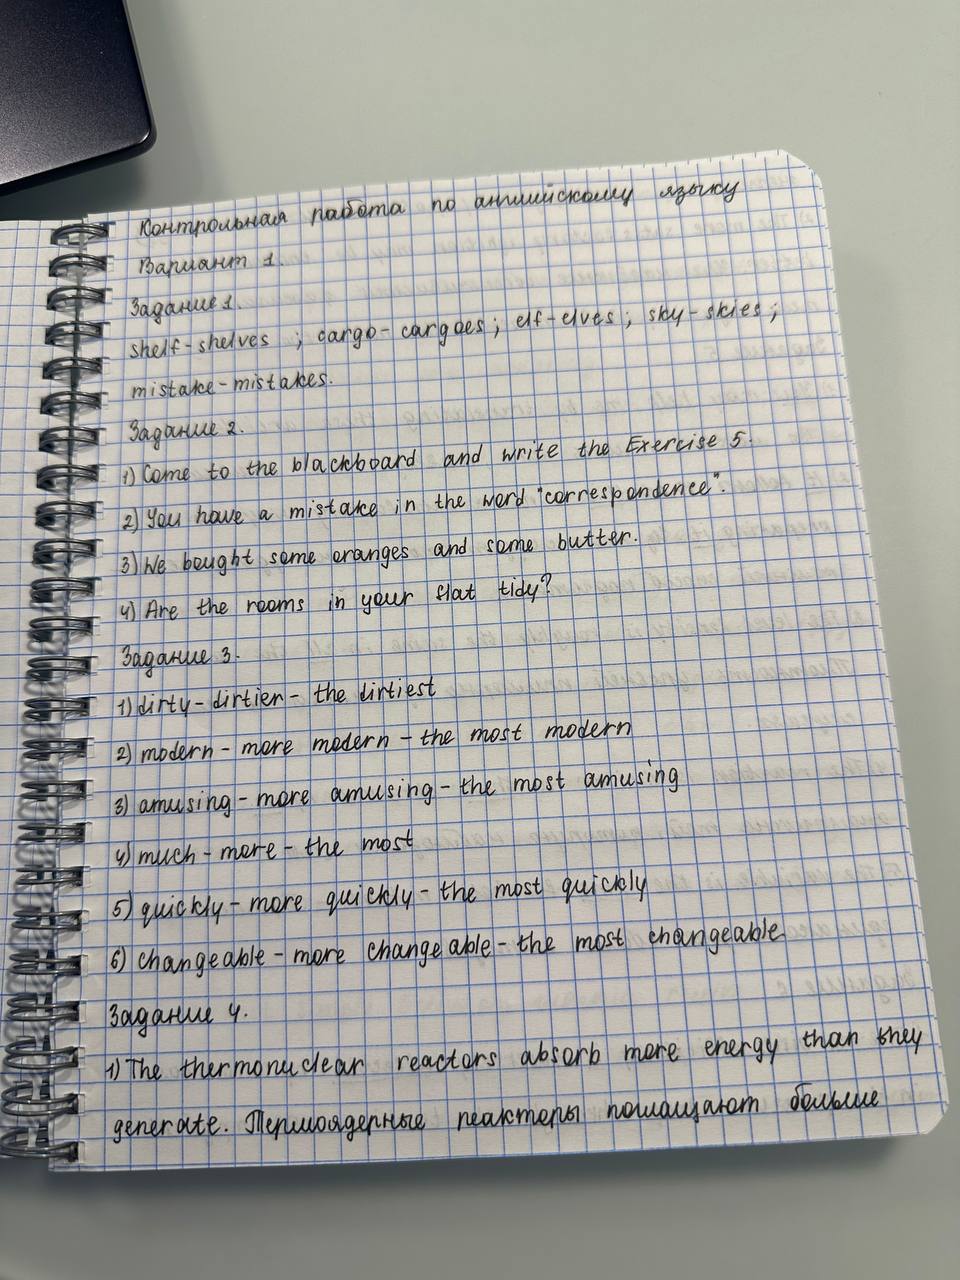 Контрольная работа по английскому языку
Вариант 1.
Задание 1.
shelf-shelves ; cargo-cargoes; elf-elves; sky-skies;
mistake-mistakes.
Задание 2.
1) Come to the blackboard and write the Exercise 5.
2) You have a mistake in the word "correspondence".
3) We bought some oranges and some butter.
4) Are the rooms in your flat tidy?
Задание 3.
1) dirty-dirtier-the dirtiest
2) modern-more modern-the most modern
3) amusing-more amusing-the most amusing
4) much-more-the most
5) quickly-more quickly-the most quickly
6) changeable-more changeable-the most changeable
Задание 4.
1) The thermonuclear reactors absorb more energy than they
generate. Термоядерные реакторы поглощают больше